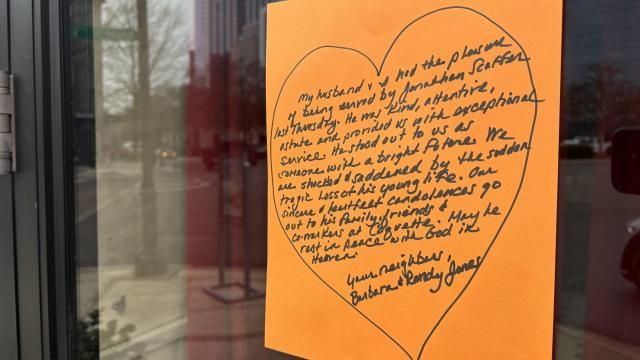 My husband & I had the pleasure
of being served by Jonathan Scaffer
last Thursday. He was kind, attentive,
astute and provided us with exceptional
service. He stood out to us as
someone with a bright future. We
are shocked & saddened by the sudden
tragic loss of his young life. Our
sincere & heartfelt condolences go
out to his family, friends &
co-workers at Coquette. May he
rest in peace with God in
Heaven.
Your neighbors,
Barbara & Randy Jones